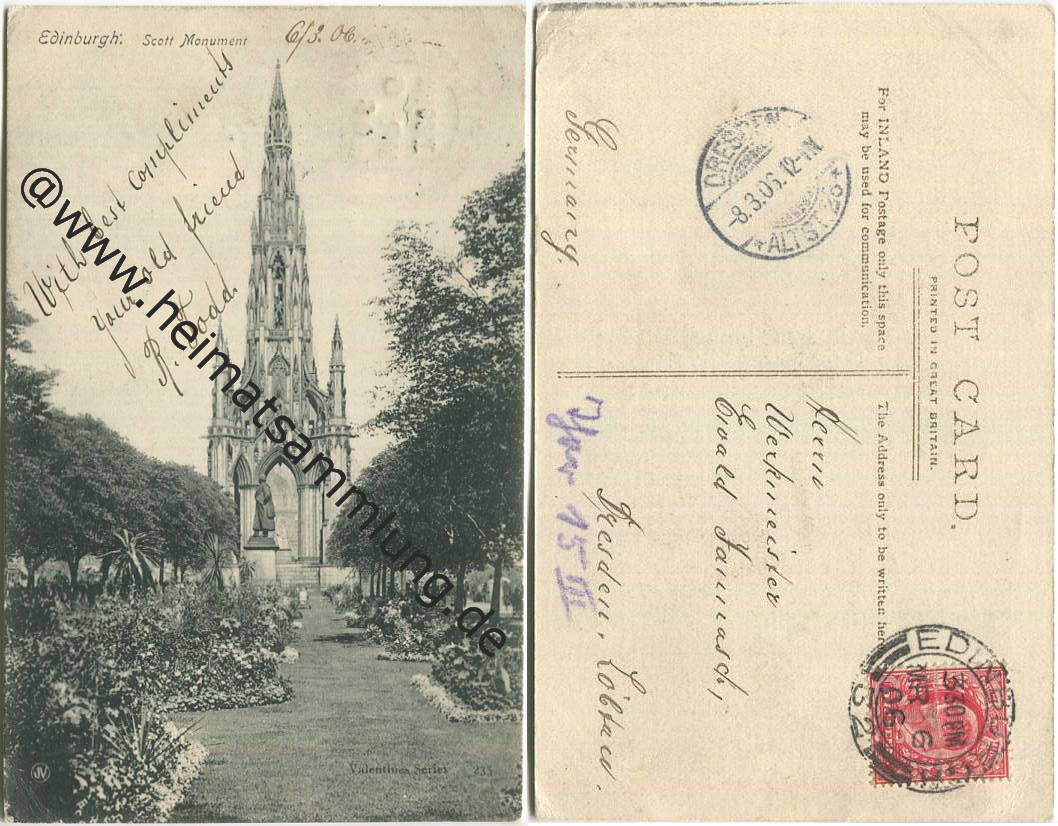 Edinburgh. Scott Monument 6/3.06.
With best compliments
your old friend
R.
@www.heimatsammlung.de
JV
Valentines Series 235
POST CARD.
PRINTED IN GREAT BRITAIN.
For INLAND Postage only this space
may be used for communication.
The Address only to be written here
Herrn
Werkmeister
Ewald Jannasch,
Dresden. Löbtau.
Germany.
15 III
DRESDEN
8.3.06. 12-1N
*ALTST. 26*
EDINBURGH
3 30 PM
MR 6
06